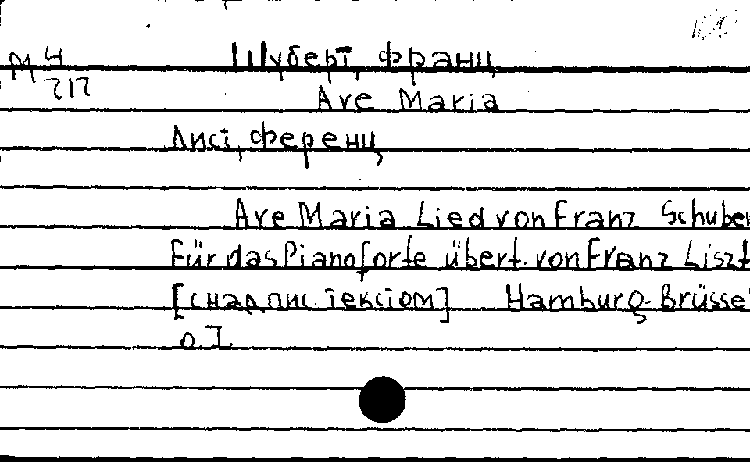 М 4/212
Шуберт, Франц
Ave Maria
Лист, Ференц
Ave Maria Lied von Franz Schuber
Für das Pianoforte übert. von Franz Liszt
[с надпис. текстом] Hamburg-Brüssel